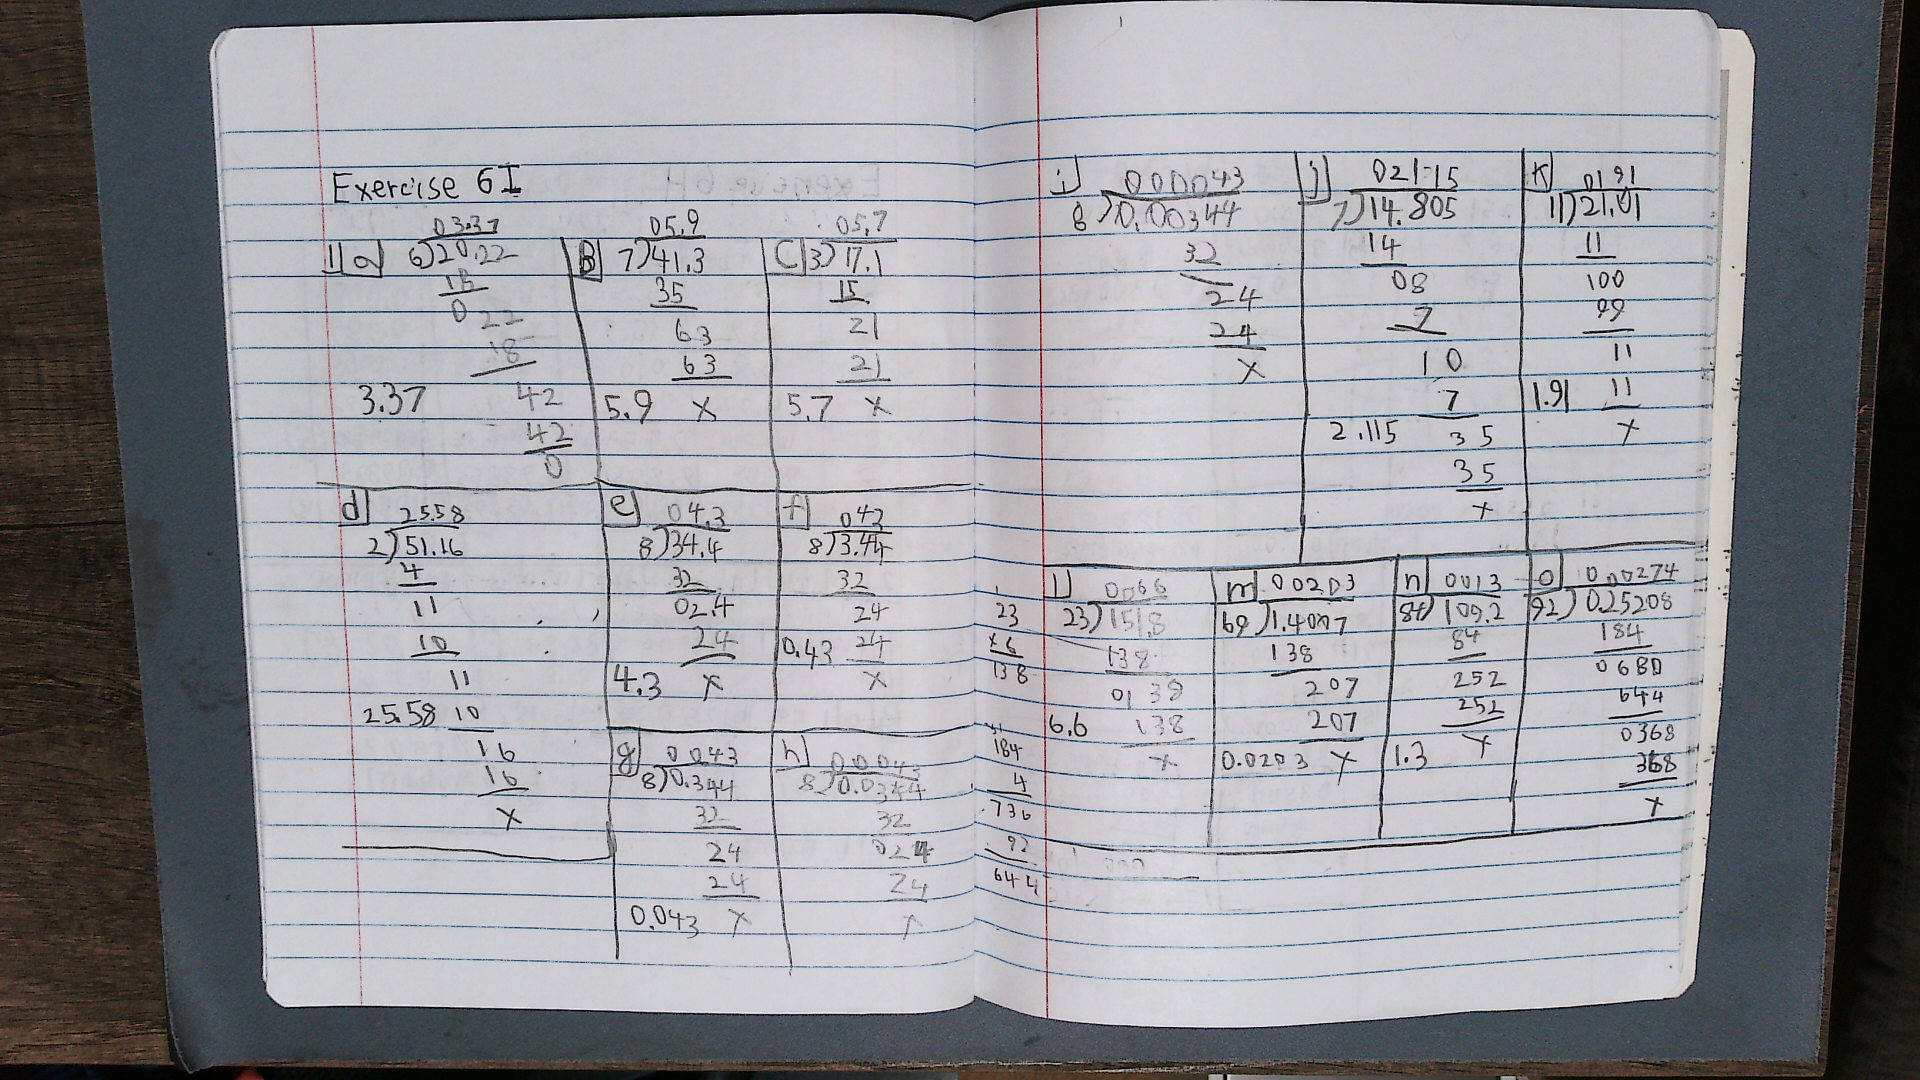 Exercise 6I
1a)
03.37
6)20.22
18
0 22
18
42
42
0
3.37
B)
05.9
7)41.3
35
63
63
5.9 x
C)
05.7
3)17.1
15
21
21
5.7 x
d)
25.58
2)51.16
4
11
10
11
25.58 10
16
16
x
e)
04.3
8)34.4
32
02.4
24
4.3 x
f)
043
8)3.44
32
24
0.43 24
x
g)
0.043
8)0.344
32
24
24
0.043 x
h)
0.0043
8)0.0344
32
024
24
x
i)
000043
8)0.00344
32
24
24
x
j)
02115
7)14.805
14
08
7
10
7
2.115 35
35
x
k)
0191
11)21.01
11
100
99
11
1.91 11
x
23
x6
138
l)
0066
23)151.8
138
0138
6.6 138
x
184
4
736
92
644
m)
00203
69)1.4007
138
207
207
0.0203 x
n)
0013
84)109.2
84
252
252
1.3 x
o)
0.00274
92)0.25208
184
0680
644
0368
368
x